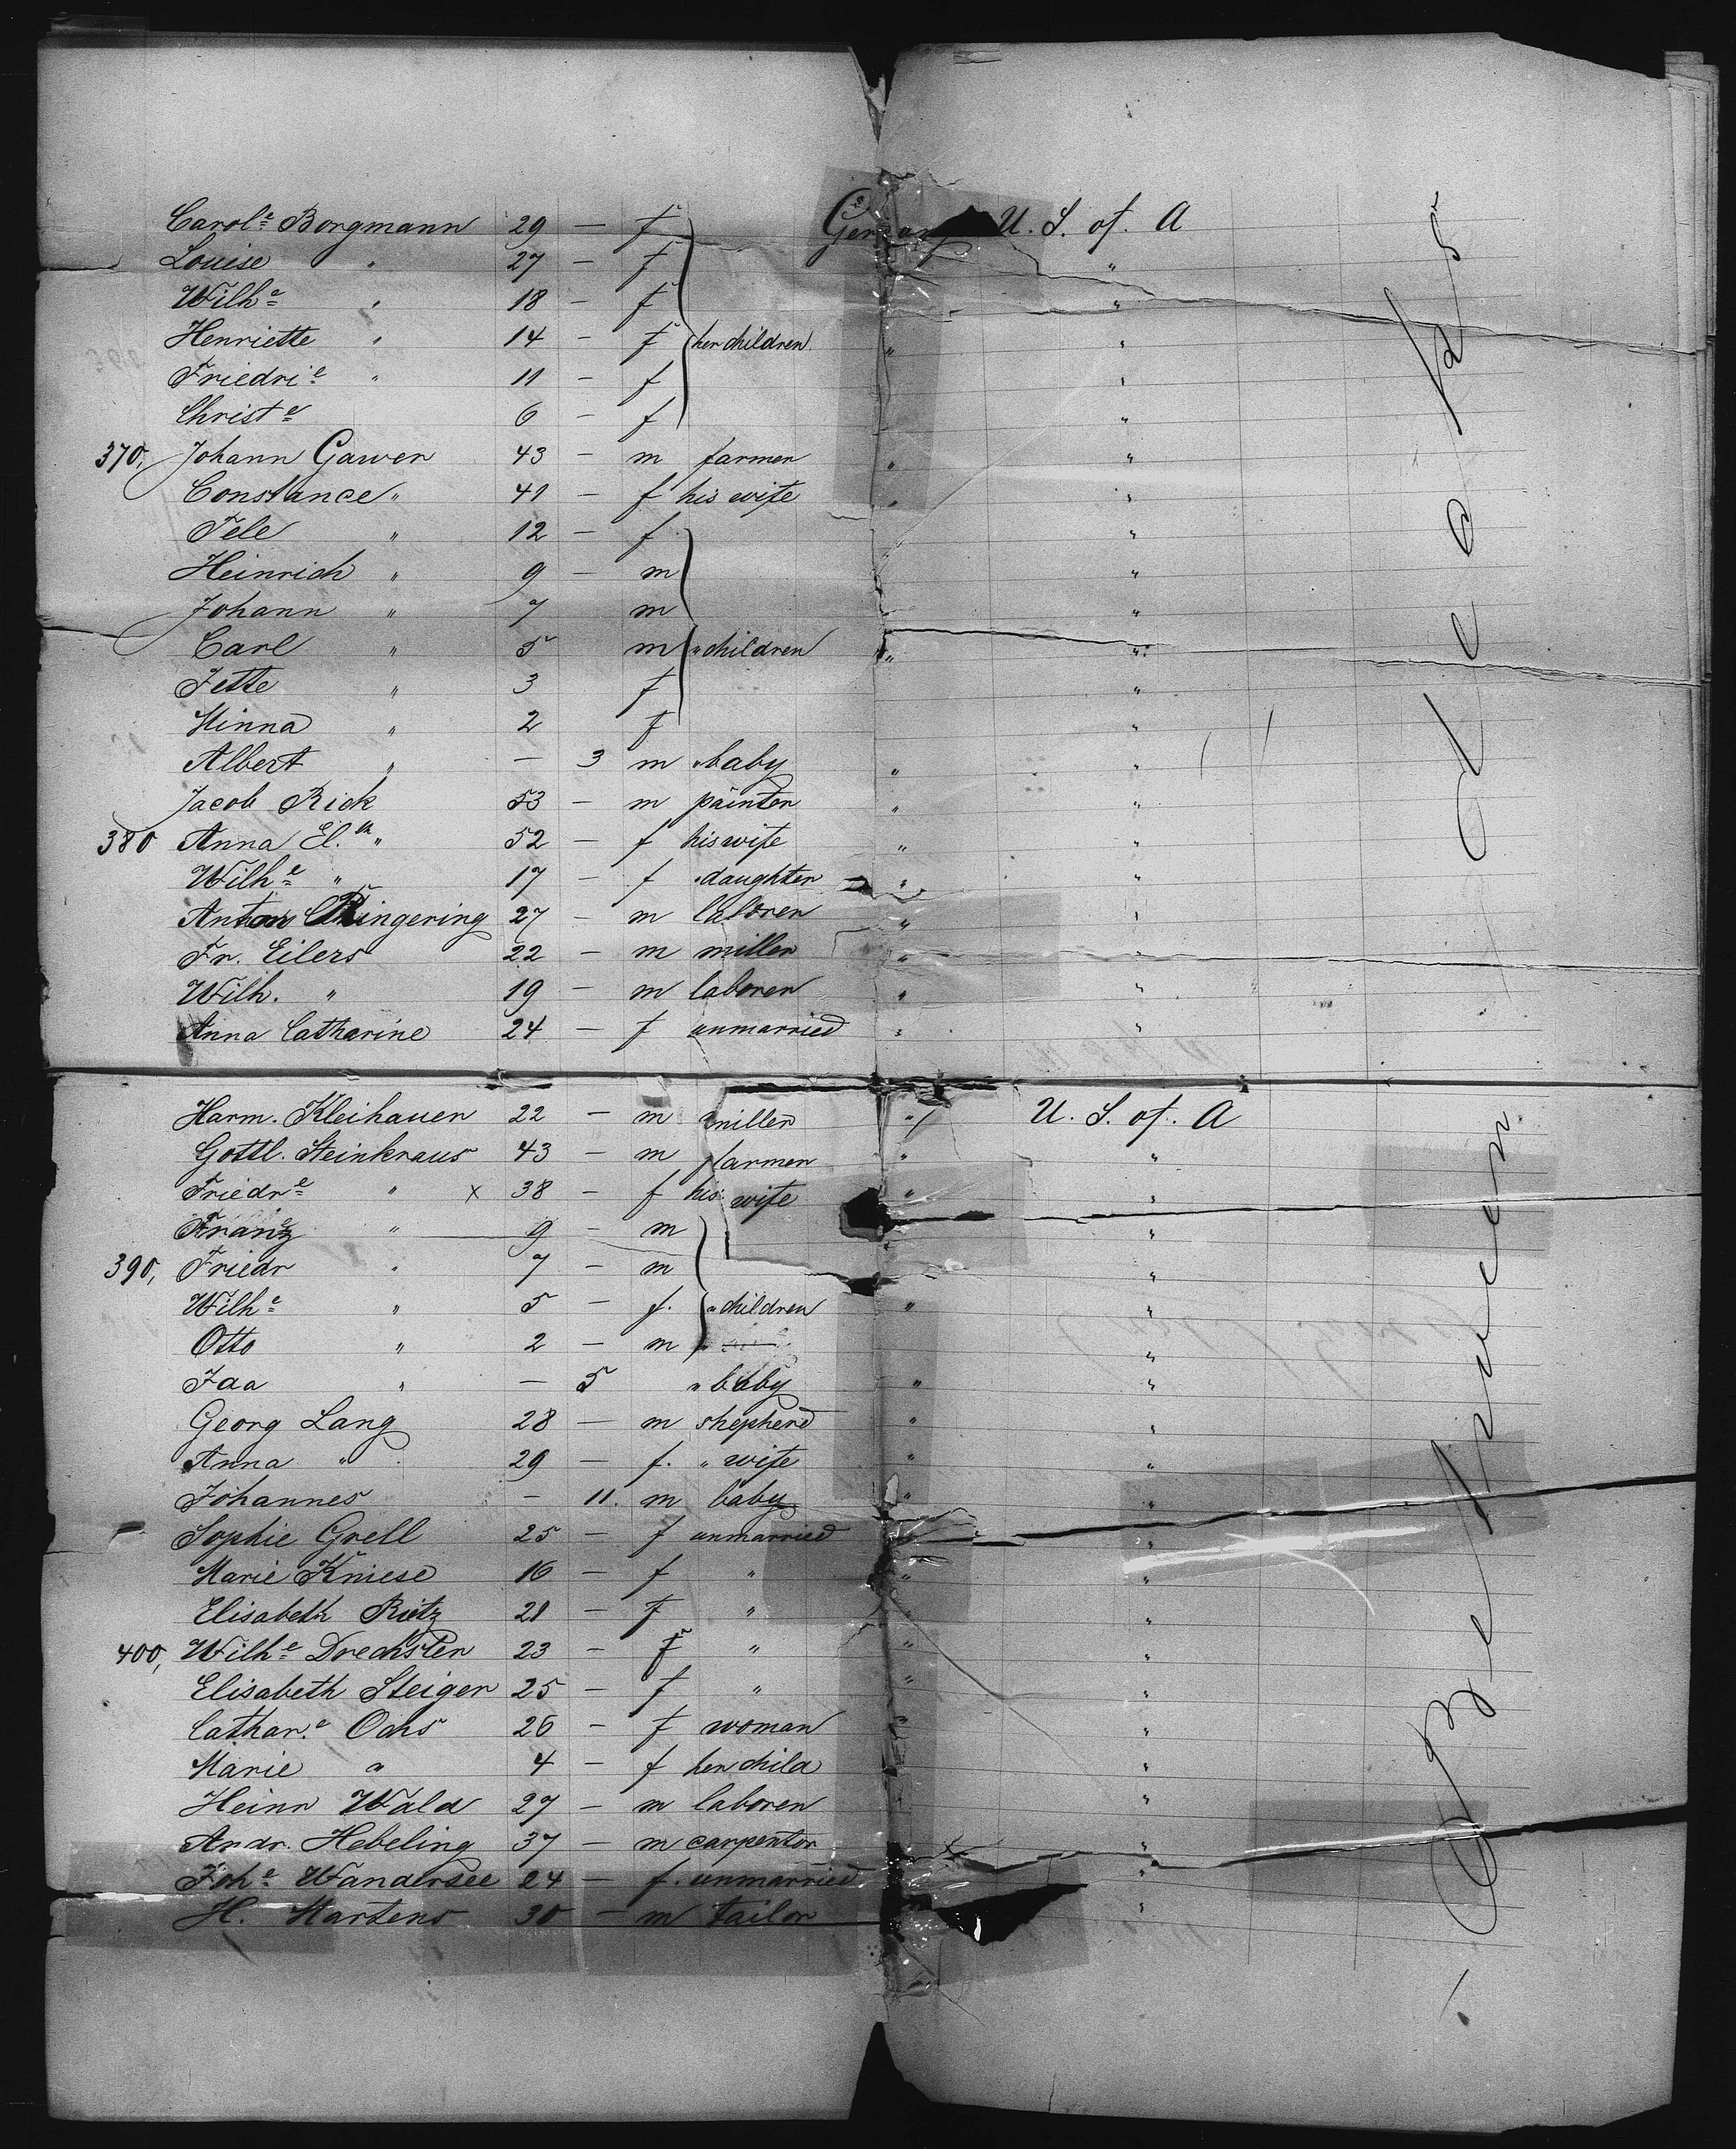 Carol.e Borgmann 29 — f Germany U. S. of. A
Louise " 27 — f "
Wilh.e " 18 — f "
Henriette " 14 — f her children " "
Friedri.e " 11 — f "
Christ.e 6 — f "
370, Johann Gawer 43 — m farmer " "
Constance " 41 — f his wife " "
Tele " 12 — f "
Heinrich " 9 — m "
Johann " 7 m "
Carl " 5 m " children " "
Jette " 3 f "
Minna " 2 f "
Albert " — 3 m " baby " "
Jacob Rick 53 — m painter " "
380 Anna El.th " 52 — f his wife " "
Wilh.e " 17 — f " daughter " "
Anton Ringering 27 — m laborer " "
Fr. Eilers 22 — m miller " "
Wilh. " 19 — m laborer " "
Anna Catharine 24 — f unmarried " "
Harm. Kleihauer 22 — m miller " U. S. of. A
Gottl. Steinkraus 43 — m farmer " "
Friedr.e " x 38 — f his wife " "
Franz " 9 — m "
390, Friedr " 7 — m "
Wilh.e " 5 — f. " children " "
Otto " 2 — m " "
Jaa " — 5 " baby " "
Georg Lang 28 — m shepherd " "
Anna " 29 — f. " wife " "
Johannes — 11. m baby " "
Sophie Grell 25 — f unmarried " "
Marie Kniese 16 — f " " "
Elisabeth Rietz 21 — f " " "
400, Wilh.e Drechsler 23 — f " " "
Elisabeth Steiger 25 — f " " "
Cathar.e Ochs 26 — f woman " "
Marie " 4 — f her child "
Heinr Wald 27 — m laborer "
Andr. Hebeling 37 — m carpentor "
Joh.e Wandersee 24 — f. unmarried "
H. Martens 30 — m tailor "
— Between decks